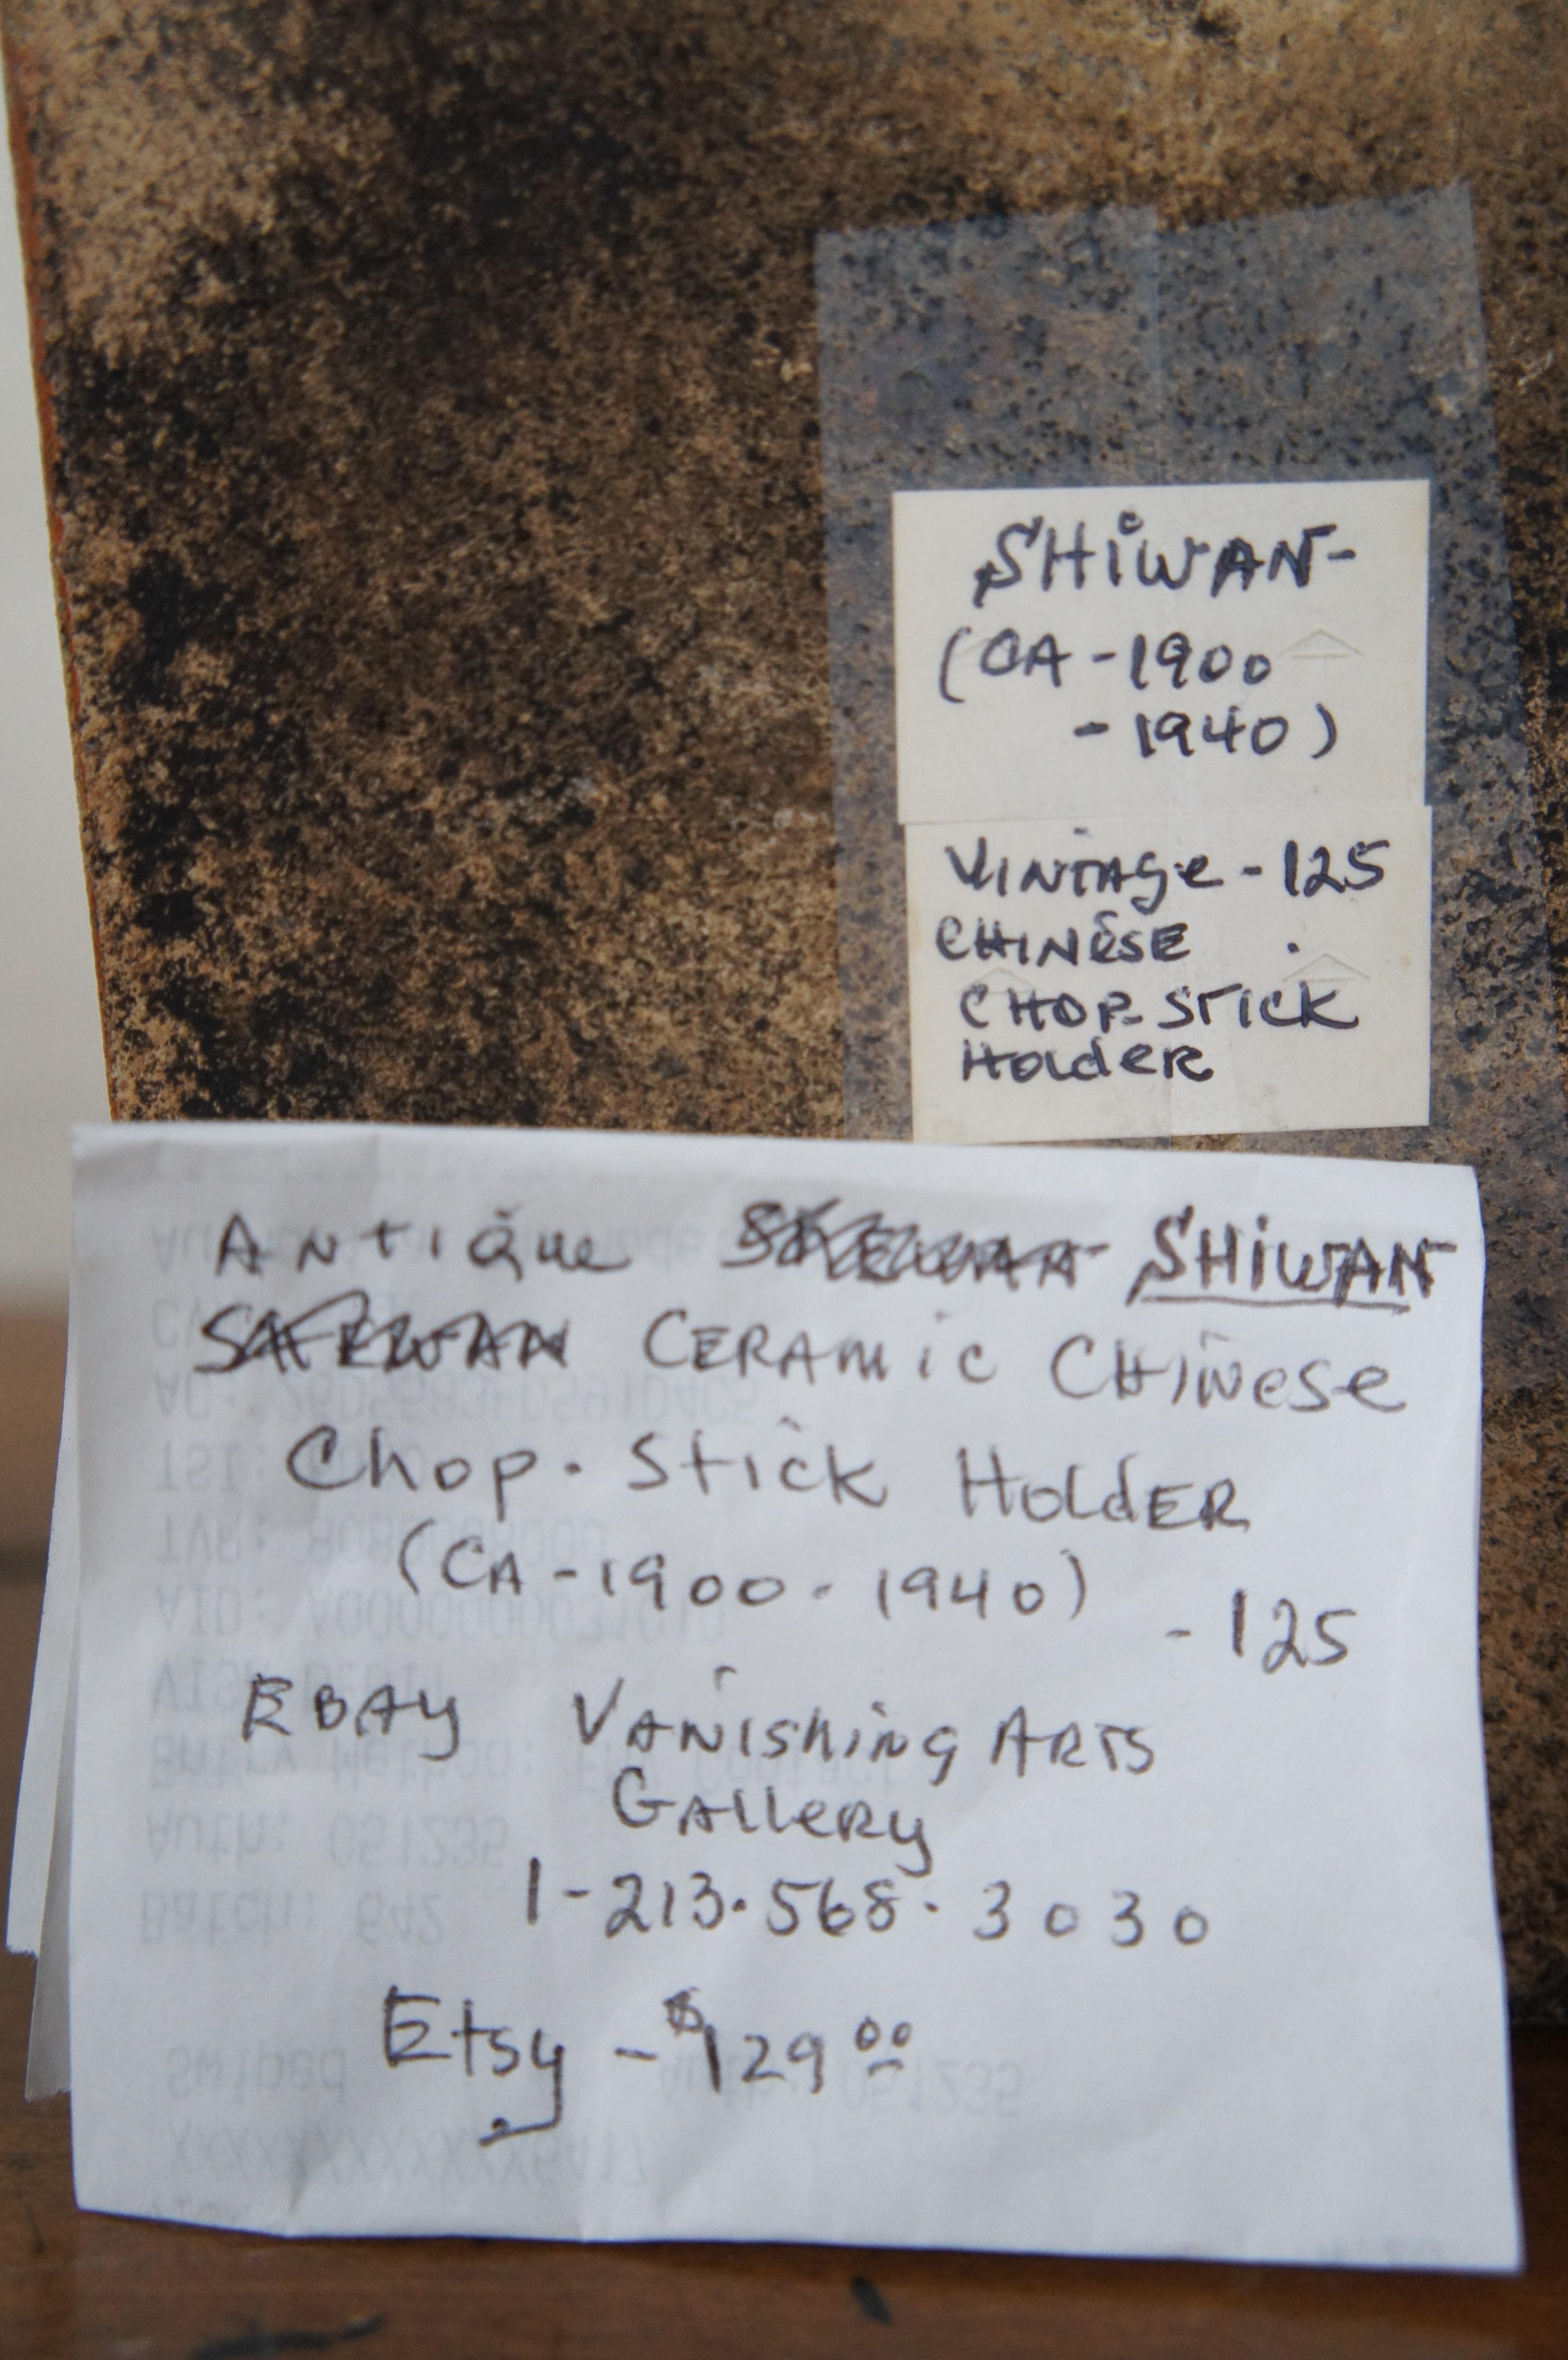 SHIWAN-
(CA-1900
-1940)
VINTAGE-125
CHINESE
CHOP-STICK
HOLDER
ANTIQUE SHIWAN
CERAMIC CHINESE
Chop-Stick HOLDER
(CA-1900-1940)
-125
EBAY VANISHING ARTS
GALLERY
1-213-568-3030
Etsy - $129 00